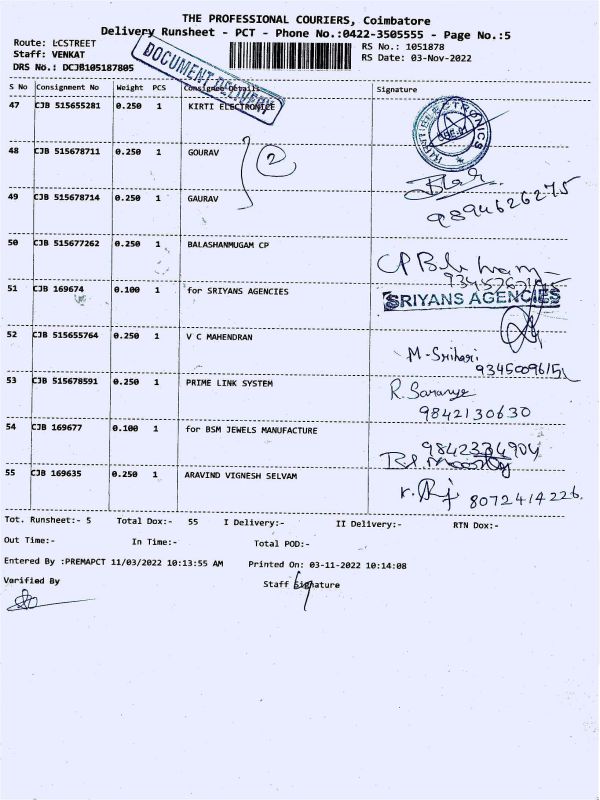 THE PROFESSIONAL COURIERS, Coimbatore
Delivery Runsheet - PCT - Phone No.:0422-3505555 - Page No.:5
Route: LCSTREET
RS No.: 1051878
Staff: VENKAT
RS Date: 03-Nov-2022
DRS No.: DCJB105187805
DOCUMENT DELIVERY
S No Consignment No Weight PCS Consignee Details Signature
47 CJB 515655281 0.250 1 KIRTI ELECTRONIZE
48 CJB 515678711 0.250 1 GOURAV
2
49 CJB 515678714 0.250 1 GAURAV
9894626275
50 CJB 515677262 0.250 1 BALASHANMUGAM CP
51 CJB 169674 0.100 1 for SRIYANS AGENCIES
SRIYANS AGENCIES
52 CJB 515655764 0.250 1 V C MAHENDRAN
M-Srihari
53 CJB 515678591 0.250 1 PRIME LINK SYSTEM
R. Saranya
9842130630
54 CJB 169677 0.100 1 for BSM JEWELS MANUFACTURE
55 CJB 169635 0.250 1 ARAVIND VIGNESH SELVAM
8072414226
Tot. Runsheet:- 5 Total Dox:- 55 I Delivery:- II Delivery:- RTN Dox:-
Out Time:- In Time:- Total POD:-
Entered By :PREMAPCT 11/03/2022 10:13:55 AM Printed On: 03-11-2022 10:14:08
Varified By Staff Signature